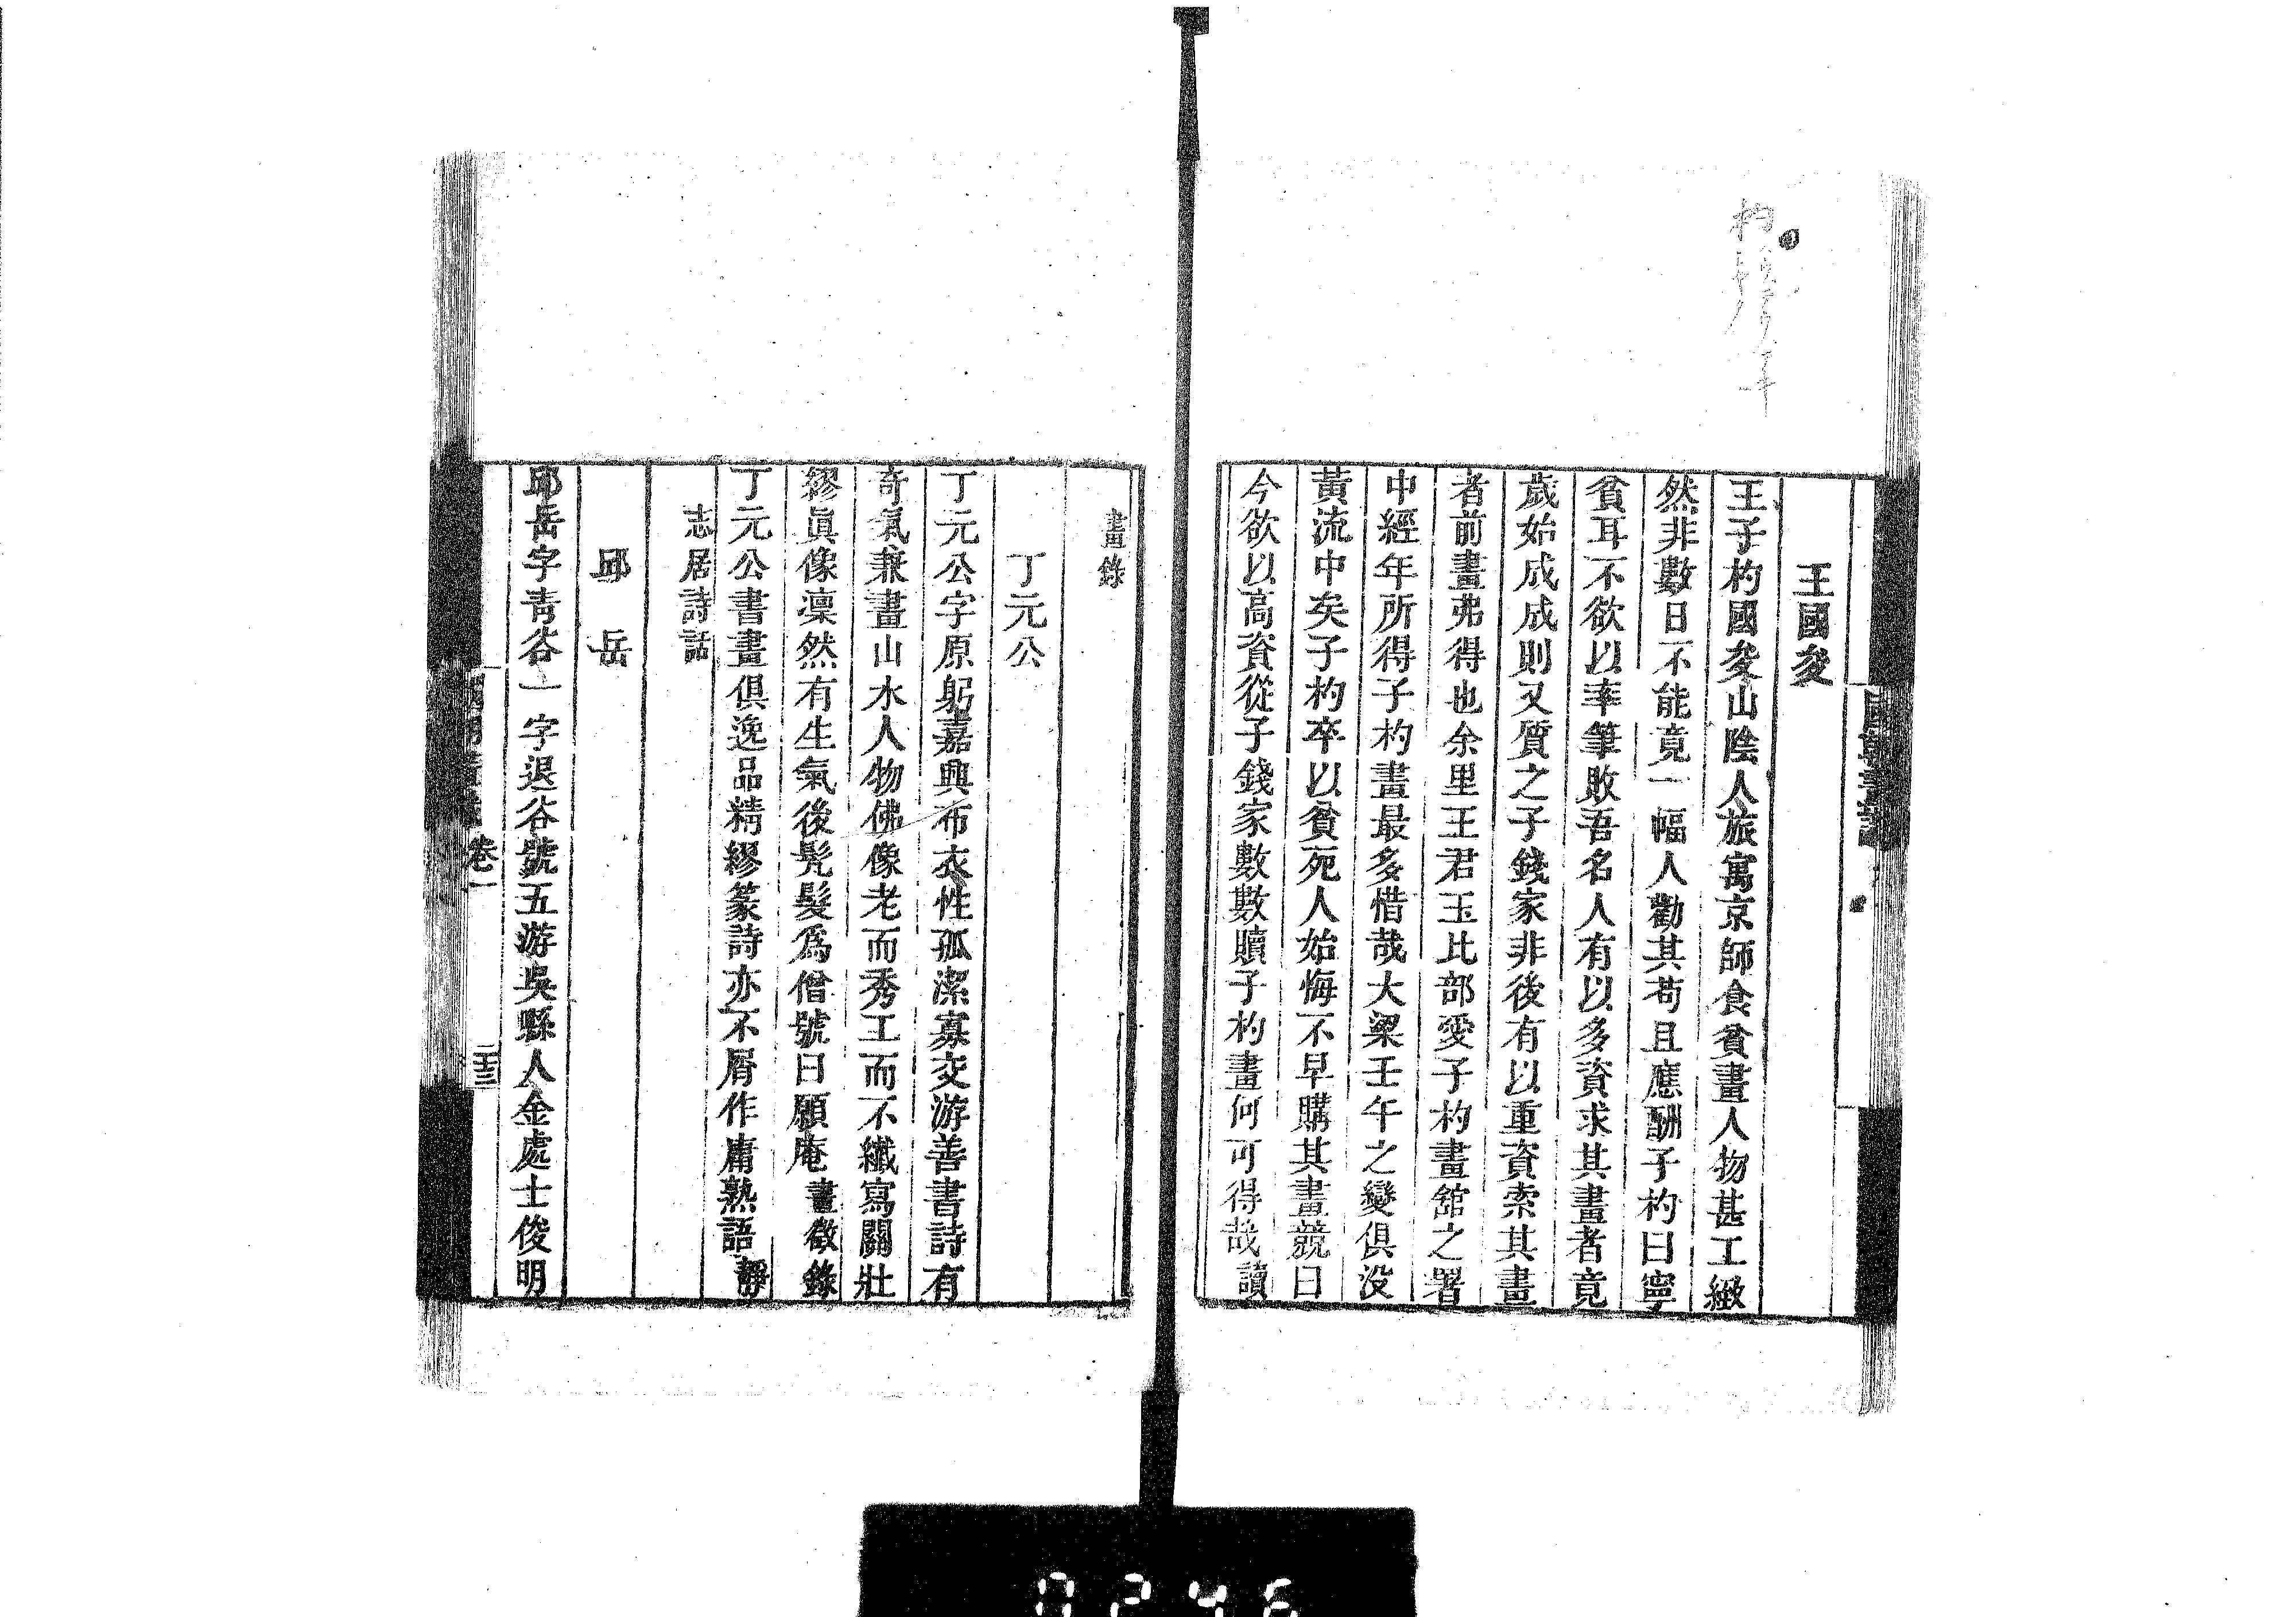 王國夋
王子杓國夋山陰人旅寓京師食貧畫人物甚工緻
然非數日不能竟一幅人勸其苟且應酬子杓曰寧
貧耳不欲以率筆敗吾名人有以多資求其畫者竟
歲始成成則又質之子錢家非後有以重資索其畫
者前畫弗得也余里王君玉比部愛子杓畫舘之署
中經年所得子杓畫最多惜哉大梁壬午之變俱没
黃流中矣子杓卒以貧死人始悔不早購其畫競曰
今欲以高資從子錢家數數贖子杓畫何可得哉讀
畫錄
丁元公
丁元公字原躬嘉興布衣性孤潔寡交游善書詩有
奇氣兼畫山水人物佛像老而秀工而不纖寫闗壯
繆眞像凜然有生氣後髠髮爲僧號曰願庵畫徵錄
丁元公書畫俱逸品精繆篆詩亦不屑作庸熟語靜
志居詩話
邱岳
邱岳字靑谷一字退谷號五游吳縣人金處士俊明
卷一
0246